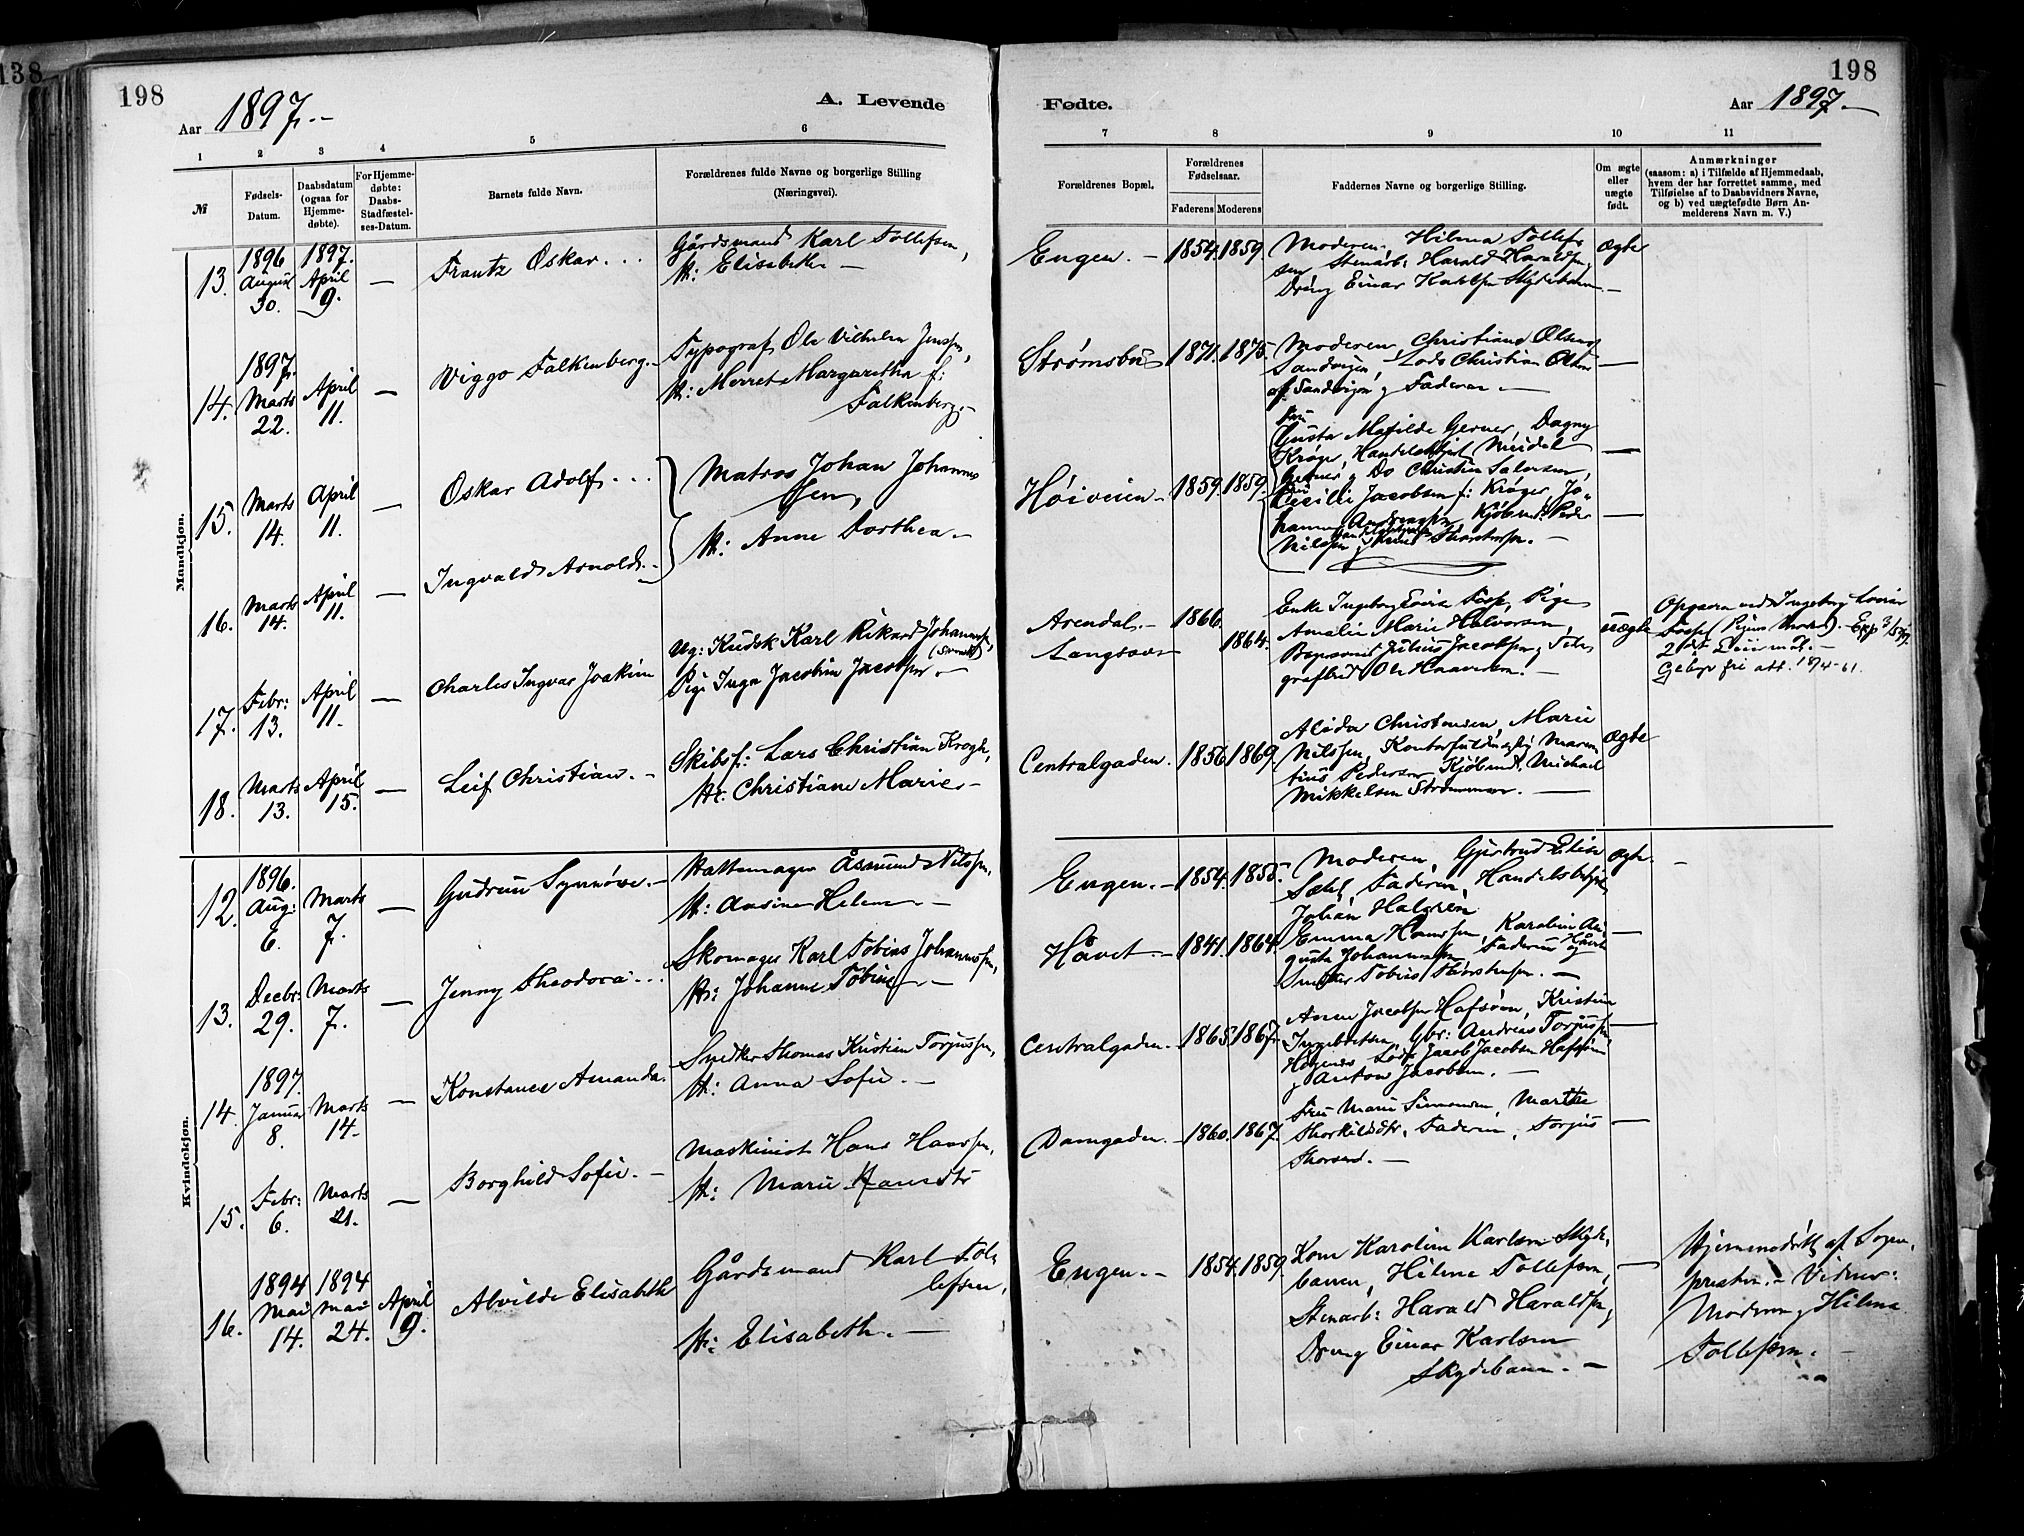 138
198
198
Aar 1897.-
A. Levende
Fødte.
Aar 1897.-
1 2 3 4 5 6 7 8 9 10 11
№
Fødsels-
Datum.
Daabsdatum
(ogsaa for
Hjemme-
døbte).
For Hjemme-
døbte:
Daabs-
Stadfæstel-
ses-Datum.
Barnets fulde Navn.
Forældrenes fulde Navne og borgerlige Stilling
(Næringsvei).
Forældrenes Bopæl.
Forældrenes
Fødselsaar.
Faderens Moderens
Faddernes Navne og borgerlige Stilling.
Om ægte
eller
uægte
født.
Anmærkninger
(saasom: a) i Tilfælde af Hjemmedaab,
hvem der har forrettet samme, med
Tilføielse af to Daabsvidners Navne,
og b) ved uægtefødte Børn An-
melderens Navn m. V.)
Mandkjøn.
13.
1896
August
30.
1897.
April
9.
—
Frantz Oskar...
Gårdsmand Karl Tollefsen,
H: Elisabeth —
Engen. —
1854. 1859.
Moderen, Hilma Tollef
sen Stenarb: Harald Haraldsen,
Dreng Einar Karlsen Skydebanen. —
ægte
14.
1897.
Marts
22.
April
11.
—
Viggo Falkenberg. —
Typograf Ole Vilhelm Jenssen,
H: Merret Margaretha f:
Falkenberg. —
Strømsbu
1871. 1875.
Moderen, Christiane Olsen
Sandvigen, Lods Christian Olsen
af Sandvigen, Faderen. —
—
15.
Marts
14.
April
11.
—
Oskar Adolf...
Matros Johan Johannes
sen,
H: Anne Dorthea. —
Høiveien —
1859. 1859.
Fru
Gusta Matilde Gerner, Dagny
Krøger,
Do Christian
Cecilie Jacobsen f: Krøger, Jo-
Kjøbmd: Peder
Nilsen
—
16.
Marts
14.
April
11.
—
Ingvald Arnold. —
—
17.
Febr:
13.
April
11.
—
Charles Ingvar Joakim
Ug: Kudsk Karl Rikard Johannsen,
(Svensk)
Pige Inga Jacobine Jacobsen —
Arendal. —
Langsæv
1866.
1864.
Enke Ingeborg Lovise Foss, Pige
Amalie Marie Halvorsen,
Julius Jacobsen,
Ole Haavorsen. —
uægte
Opgava ved Ingeborg Lovise
Foss (Pigens Moder). —
Gebyr fri att. 18/4-61.
18.
Marts
13.
April
15.
—
Leif Christian. —
Skibsf: Lars Christian Krogh,
H: Christiane Marie —
Centralgaden.
1856. 1869.
Alida Christensen, Marie
Nilssen, Kontorfuldmægtig Maren
tius Pedersen Kjøbmd: Michael
Mikkelsen Strømmen. —
ægte
Kvindekjøn.
12.
1896.
Aug:
6.
Marts
7.
—
Gudrun Synnøve. —
Hattemager Åsmund Nilssen,
H: Ansine Helene —
Engen. —
1854. 1855.
Moderen, Gjertrud Elise
Faderen, Handelsbetjent
Johan Halgren
ægte
—
13.
Decbr:
29.
Marts
7.
—
Jenny Theodora...
Skomager Karl Tobias Johannssen,
H: Johanne Tobine —
Håvet. —
1841. 1864.
Emma Hanssen, Karoline Au-
gusta Johannssen, Faderen Håvet
Snedker Tobias —
—
14.
1897.
Januar
8.
Marts
14.
—
Konstance Amanda.
Snedker Thomas Kristian Torjussen,
H: Anna Sofie. —
Centralgaden. —
1865. 1867.
Anne Jacobsen Hafsøen, Kristine
Ingebretsen, Gbr: Andreas Torjussen,
Lods Jacob Jacobsen Hafsøen
& Anton Jacobsen. —
—
15.
Febr:
6.
Marts
21.
—
Borghild Sofie. —
Maskinist Hans Hanssen,
H: Marie Hansdtr
Damgaden. —
1860. 1867.
Fru Marie Simonsen, Marthe
Thorkildsdtr, Faderen, Torjus
Thorsen. —
—
16.
1894
Mai
14.
1894
Mai
24.
April
9.
Alvilde Elisabeth
Gårdsmand Karl Tol
lefsen,
H: Elisabeth. —
Engen. —
1854. 1859.
Kone Karoline Karlsen Skyde-
banen, Hilma Tollefsen,
Stenarb: Harald Haraldsen,
Dreng Einar Karlsen
Skydebanen. —
—
Hjemmedøbt af Sogne-
presten. — Vidner:
Moderen & Hilma
Tollefsen. —